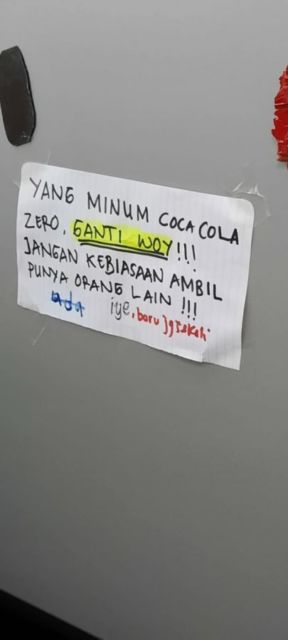 YANG MINUM COCA COLA
ZERO, GANTI WOY !!!
JANGAN KEBIASAAN AMBIL
PUNYA ORANG LAIN !!!
iye, baru